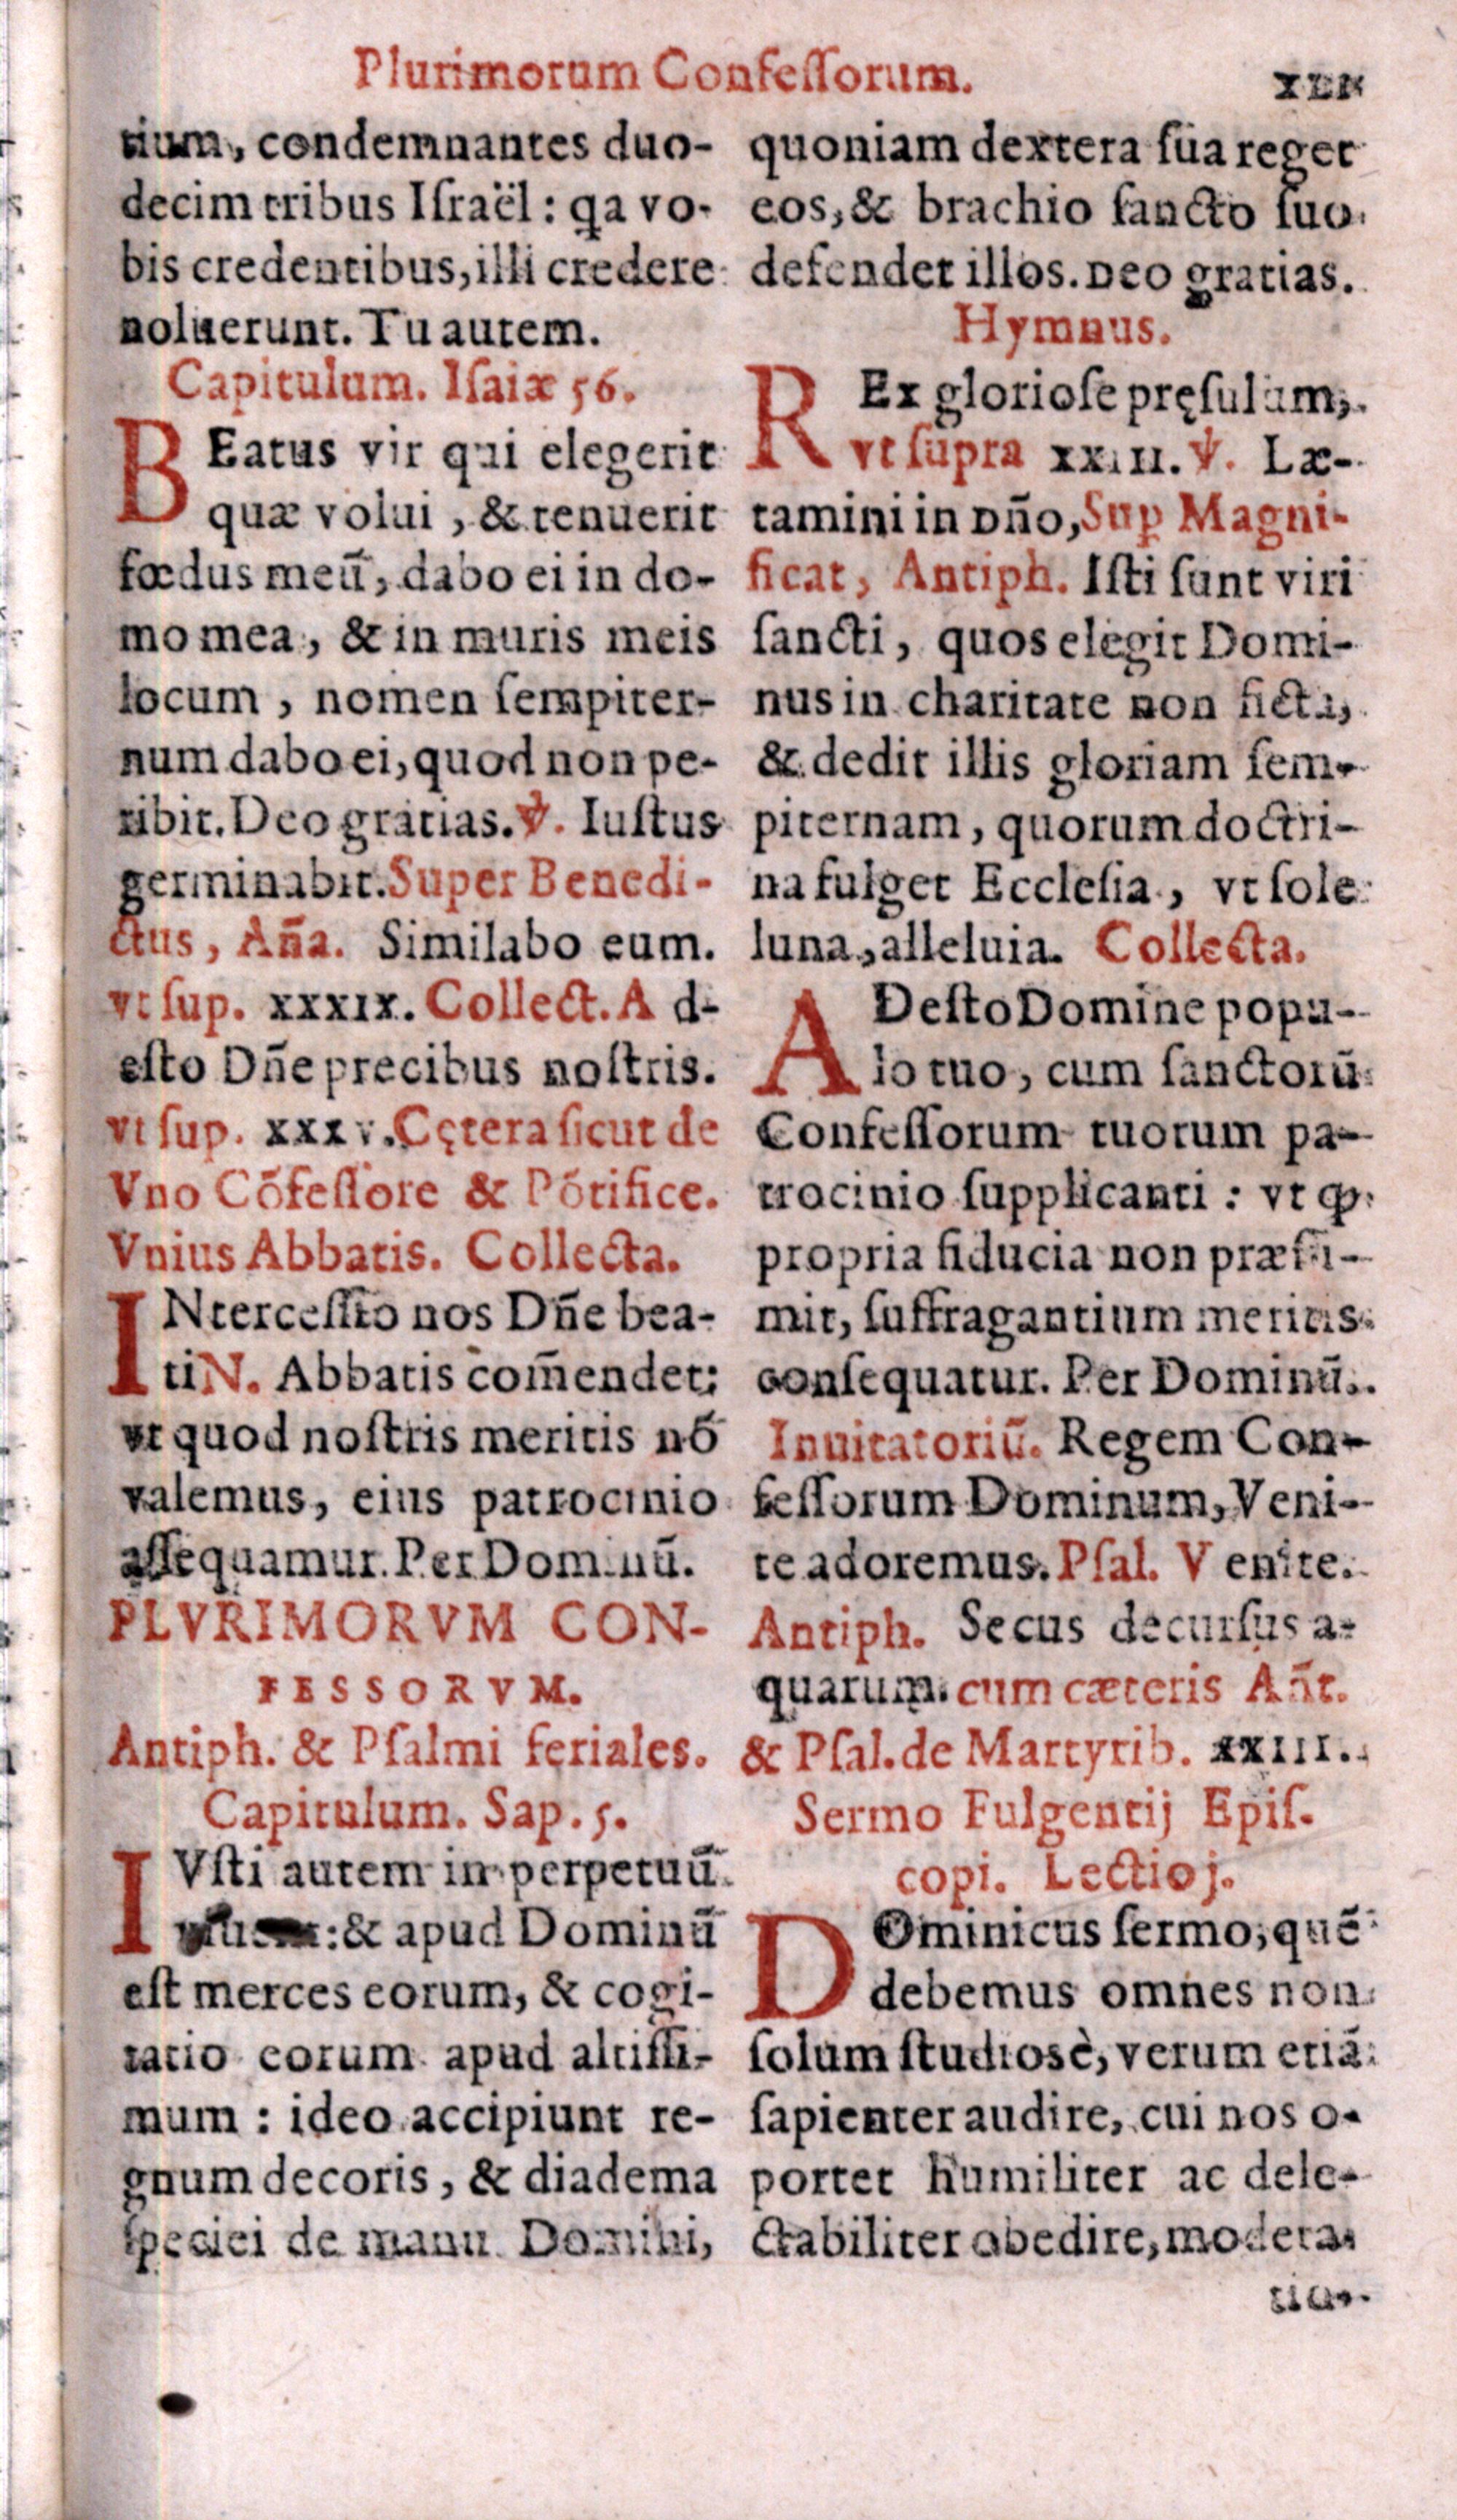 Plurimorum Confeſſorum.
tium, condemnantes duo-
decim tribus Iſraël: qa vo-
bis credentibus, illi credere
noluerunt. Tu autem.
Capitulum. Iſaiæ 56.
BEatus vir qui elegerit
quæ volui, & tenuerit
fœdus meũ, dabo ei in do-
mo mea, & in muris meis
locum, nomen ſempiter-
num dabo ei, quod non pe-
ribit. Deo gratias. ℣. Iuſtus
germinabit. Super Benedi-
ctus, Aña. Similabo eum.
vt ſup. xxxix. Collect. A d-
eſto Dñe precibus noſtris.
vt ſup. xxxv. Cętera ſicut de
Vno Cõfeſſore & Põtifice.
Vnius Abbatis. Collecta.
INterceſſio nos Dñe bea-
ti N. Abbatis com̃endet:
vt quod noſtris meritis nõ
valemus, eius patrocinio
aſſequamur. Per Dominũ.
PLVRIMORVM CON-
FESSORVM.
Antiph. & Pſalmi feriales.
Capitulum. Sap. 5.
IVſti autem in perpetuũ
: & apud Dominũ
eſt merces eorum, & cogi-
tatio eorum apud altiſſi-
mum : ideo accipiunt re-
gnum decoris, & diadema
ſpeciei de manu Domini,
quoniam dextera ſua reget
eos, & brachio ſancto ſuo
defendet illos. Deo gratias.
Hymnus.
REx glorioſe pręſulum,
vt ſupra xxiii. ℣. Læ-
tamini in Dño, Sup Magni-
ficat, Antiph. Iſti ſunt viri
ſancti, quos elegit Domi-
nus in charitate non ficta,
& dedit illis gloriam ſem-
piternam, quorum doctri-
na fulget Eccleſia, vt ſole
luna, alleluia. Collecta.
ADeſto Domine popu-
lo tuo, cum ſanctorũ
Confeſſorum tuorum pa-
trocinio ſupplicanti : vt ꝙ
propria fiducia non præſu-
mit, ſuffragantium meritis
conſequatur. Per Dominũ.
Inuitatoriũ. Regem Con-
feſſorum Dominum, Veni-
te adoremus. Pſal. V enite.
Antiph. Secus decurſus a-
quarum. cum cæteris Añt.
& Pſal. de Martyrib. xxiii.
Sermo Fulgentij Epiſ-
copi. Lectio j.
DOminicus ſermo, quẽ
debemus omnes non
ſolum ſtudiosè, verum etiã
ſapienter audire, cui nos o-
portet humiliter ac dele-
ctabiliter obedire, modera-
tio-